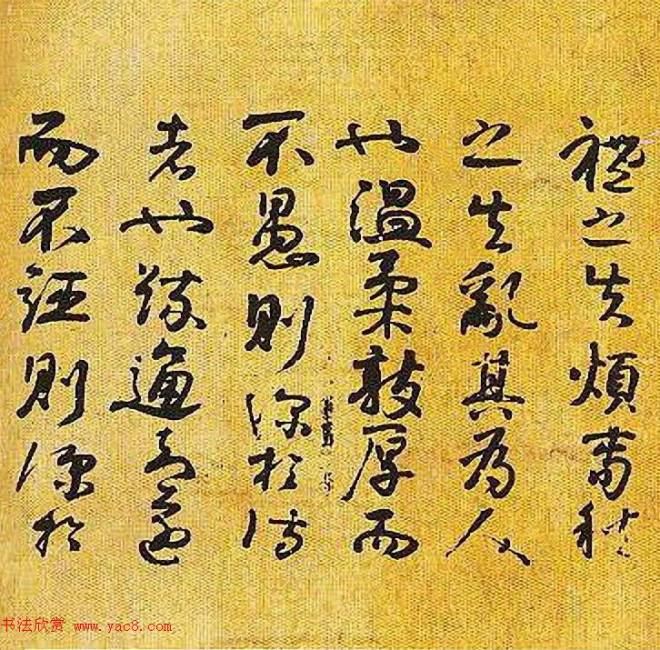 禮之失煩春秋
之失亂其為人
也溫柔敦厚而
不愚則深於詩
者也疏通知遠
而不誣則深於
书法欣赏 www.yac8.com